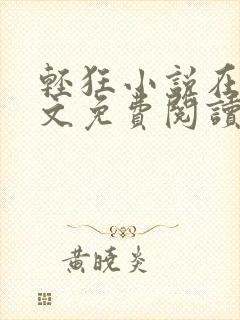 輕狂小說在
文免費閱讀
黃曉炎